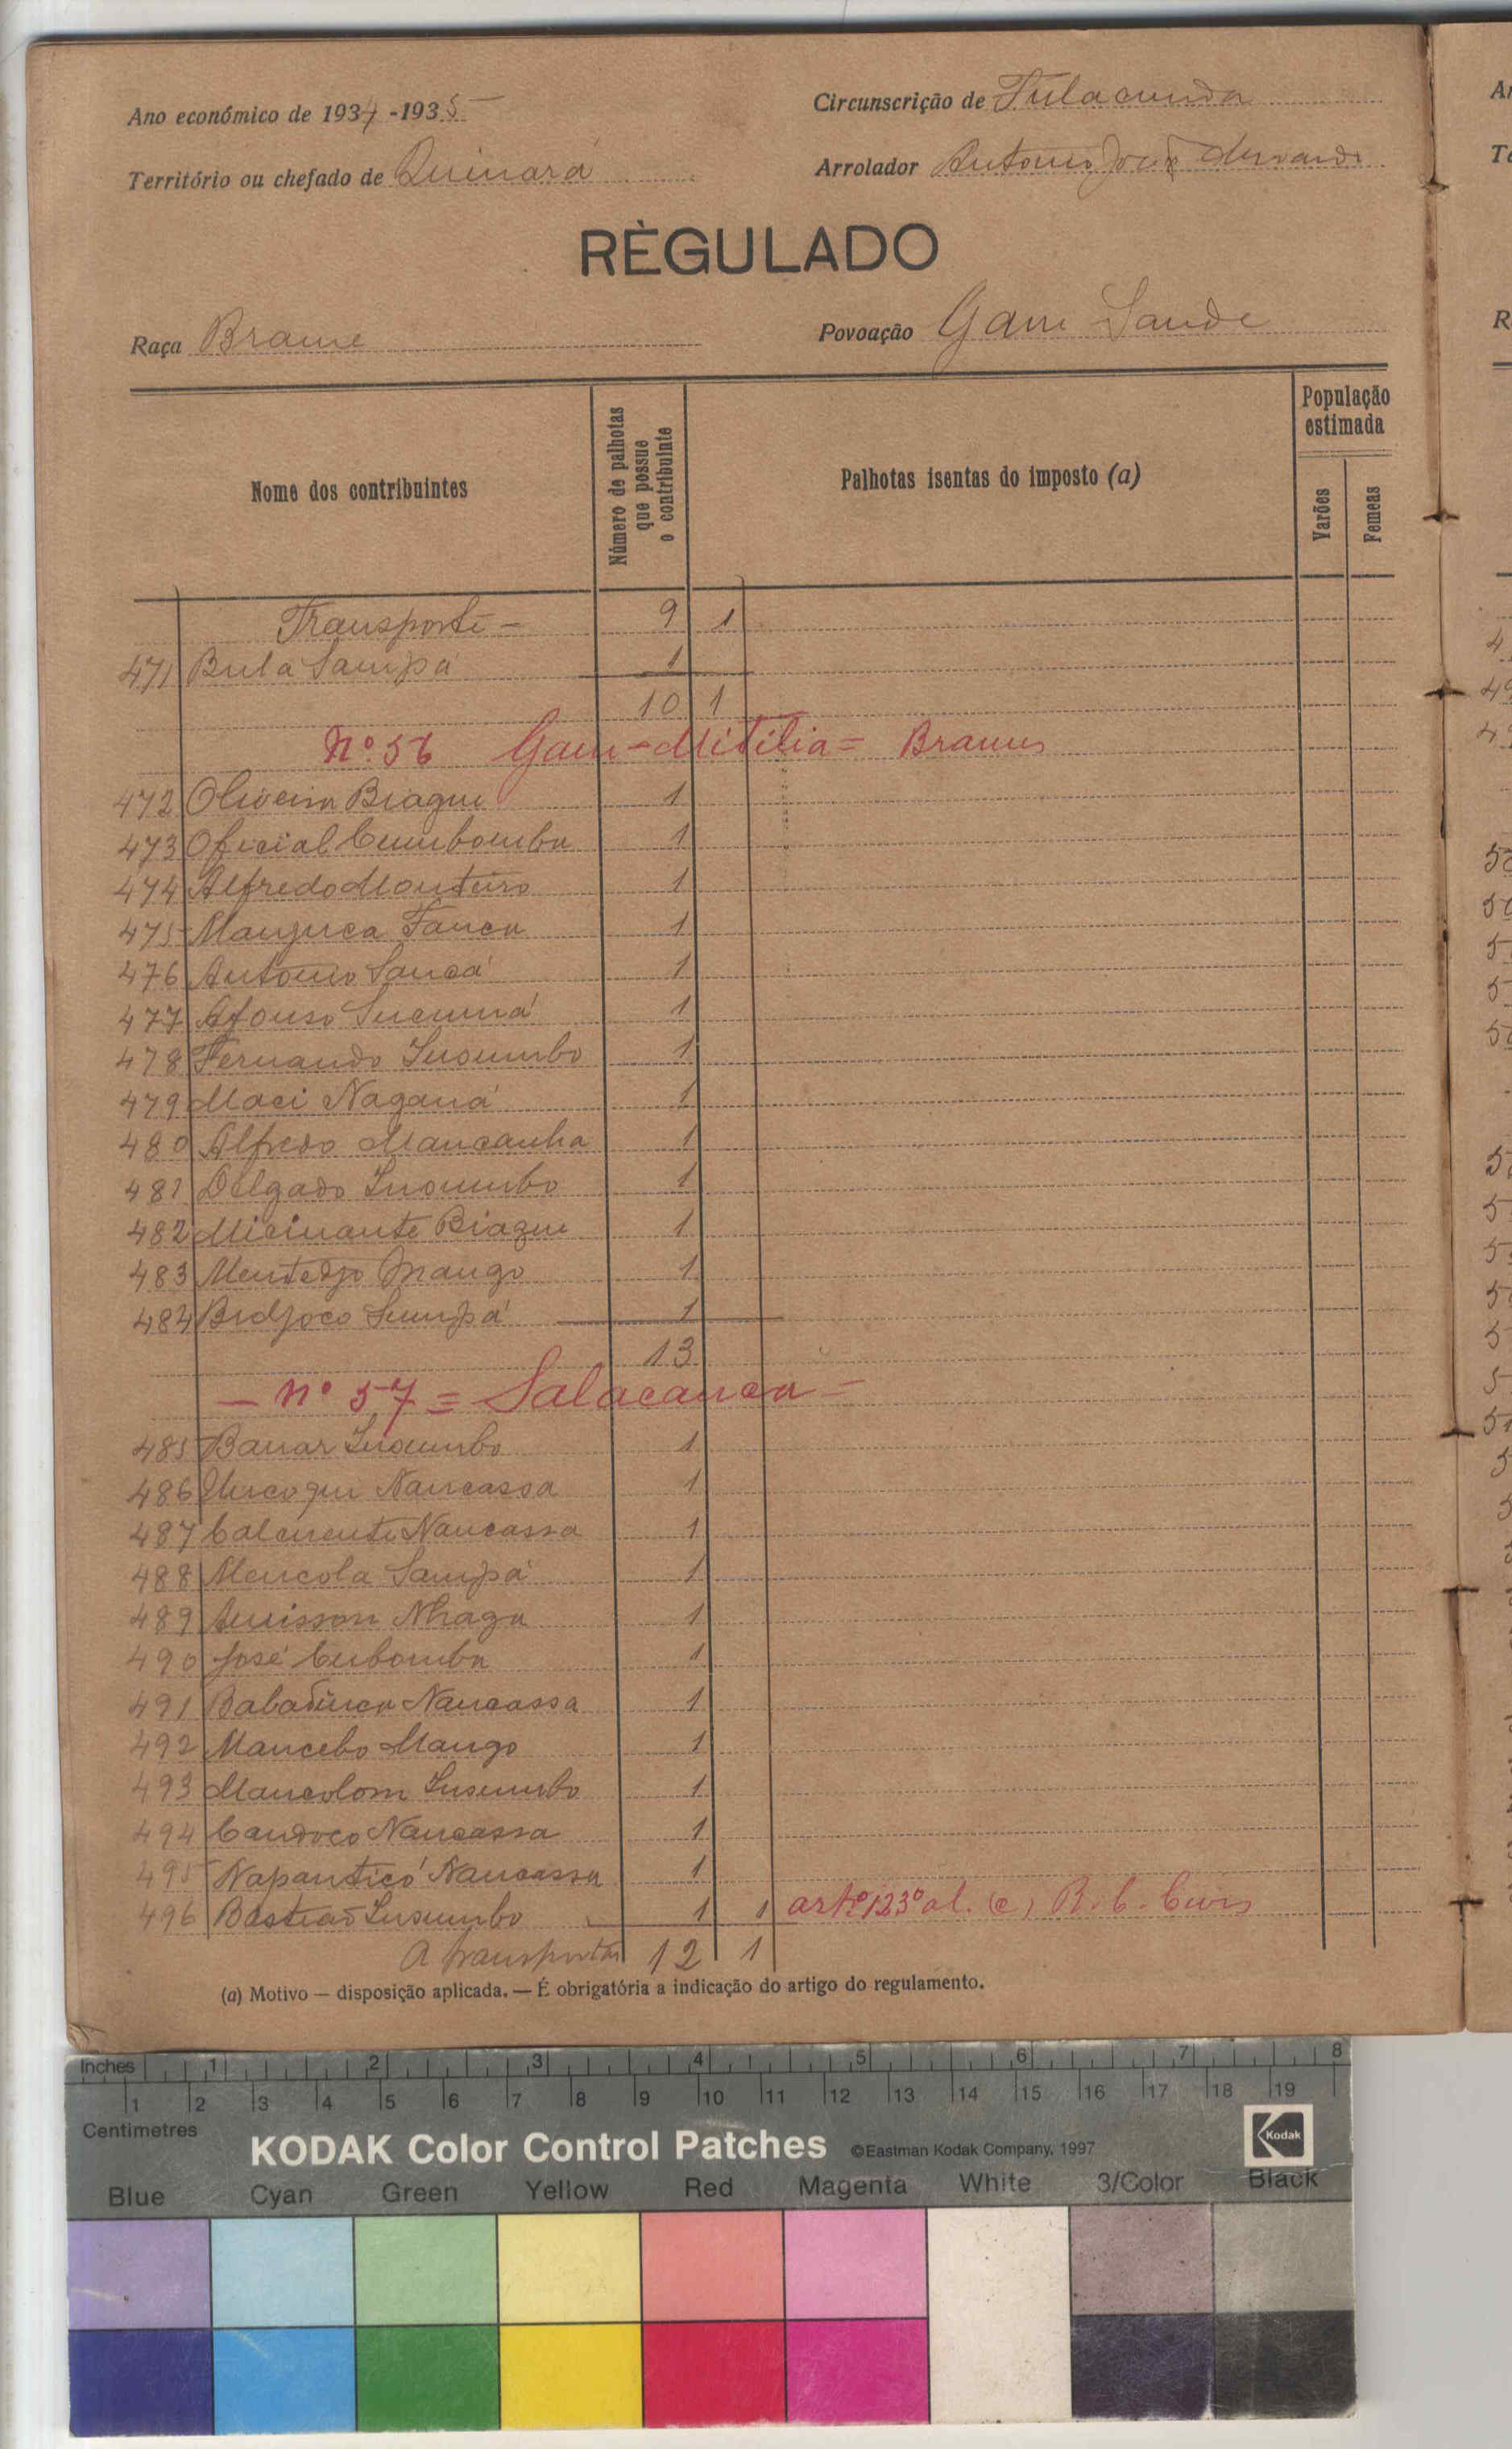 Ano económico de 1934-1935
Circunscrição de Fulacunda
Território ou chefado de Quinará
Arrolador Antonio José
RÈGULADO
Raça Brame
Povoação Gam Saude
Nome dos contribuintes
Número de palhotas que possue o contribuinte
Palhotas isentas do imposto (a)
População estimada
Varões
Femeas
Transporte - 9 1
471 Bula Sampá 1
10 1
Nº 56 Gam-Mitilia = Brames
472 Oliveira Biague 1
473 Oficial Cumbomba 1
474 Alfredo Monteiro 1
475 Manjuca Fanca 1
476 Antonio Sancá 1
477 Afonso Sucuma 1
478 Fernando Insumbo 1
479 Maci Nagana 1
480 Alfredo Mancanha 1
481 Delgado Insumbo 1
482 Mirinante Biague 1
483 Mentedjo Mango 1
484 Bidjoco Sumpá 1
13
- nº 57 = Salacanca -
485 Banar Insumbo 1
486 Nancassa 1
487 Nancassa 1
488 Mencola Sampá 1
489 Anisson Nhaga 1
490 José Cubomba 1
491 Nancassa 1
492 Mancebo Mango 1
493 Mancolom Insumbo 1
494 Candoco Nancassa 1
495 Napanticó Nancassa 1
496 Bastião Insumbo 1 1 artº 123º al. (c) R. C. Civis
A transportar 12 1
(a) Motivo — disposição aplicada. — É obrigatória a indicação do artigo do regulamento.
Inches 1 2 3 4 5 6 7 8
1 2 3 4 5 6 7 8 9 10 11 12 13 14 15 16 17 18 19
Centimetres
KODAK Color Control Patches ©Eastman Kodak Company, 1997 Kodak
Blue Cyan Green Yellow Red Magenta White 3/Color Black